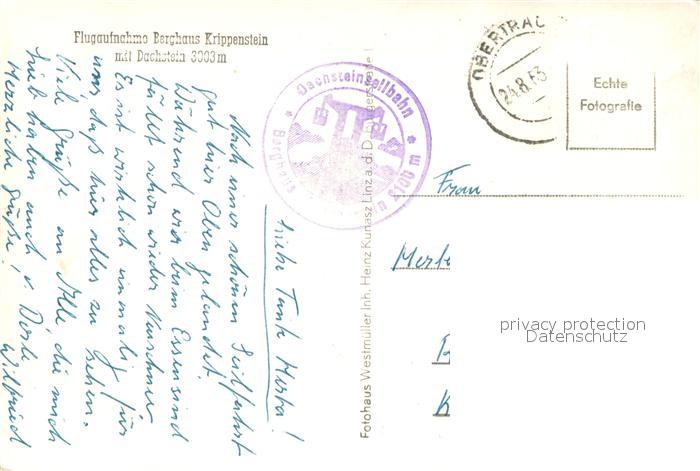 Flugaufnahme Berghaus Krippenstein
mit Dachstein 3003 m
Liebe Tante Herta!
Nach einer schönen Seilfahrt
gut hier oben gelandet.
Während wir beim Essen sind
fällt schon wieder Neuschnee
Es ist wirklich einmalig für
uns, daß hier alles zu sehen.
Viele Grüße an Alle, die mich
lieb haben auch v. Dorle
Herzliche Grüße, Wilfried
Dachsteinseilbahn
Berghaus
2100 m
Fotohaus Westmüller Inh. Heinz Kunasz Linz a. d. D.
OBERTRAU
24.8.63
Echte
Fotografie
Frau
privacy protection
Datenschutz